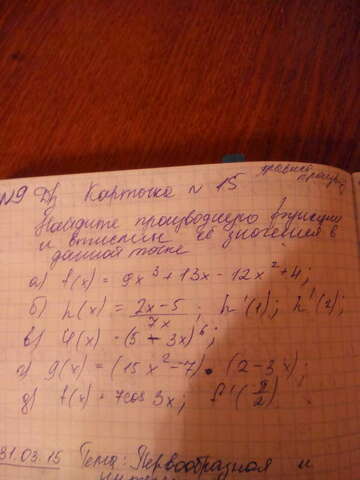 N9 Д/з Карточка N 15
Найдите производную функции
и вычислим её значения в
данной точке
а) f(x) = 9x³ + 13x - 12x² + 4;
б) h(x) = 2x-5 / 7x; h'(1); h'(2);
в) φ(x) = (5 - 3x)⁶;
г) g(x) = (15x² - 7) • (2 - 3x);
д) f(x) = 7cos 3x; f'(-π/2)
31.03.15 Тема: Первообразная и